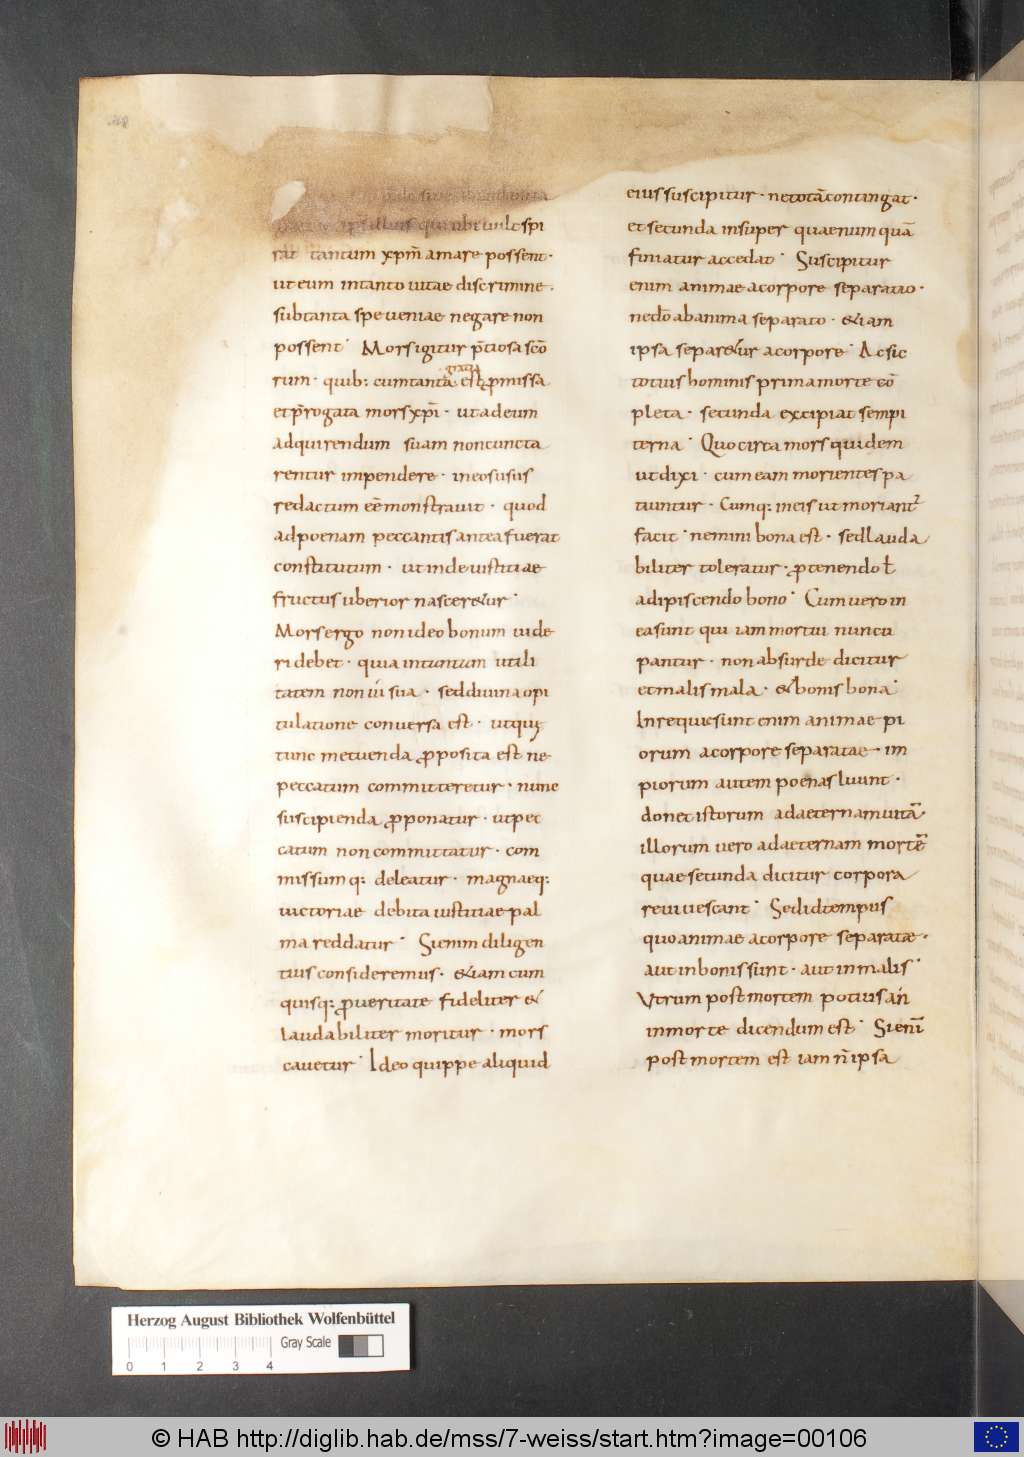 gratia ipsius qui ubi uult spi
rat tantum xp̄m̄ amare possent·
ut eum intanto uitae discrimine·
sub tanta spe ueniae negare non
possent· Mors igitur p̄tiosa sc̄o
rum· quib: cum tanta gratia est p̱missa
et p̄rogata mors xp̄i· ut ad eum
adquirendum suam noncuncta
rentur impendere· in eos usus
redactum eē monstrauit· quod
ad poenam peccantis antea fuerat
constitutum· ut inde iustitiae
fructus uberior nasceretur·
Mors ergo non ideo bonum uide
ri debet· quia in tantum utili
tatem non ui sua· sed diuina opi
tulatione conuersa est· ut quę
tunc metuenda p̱posita est ne
peccatum committeretur· nunc
suscipienda p̱ponatur· ut pec
catum non committatur· com
missumq: deleatur· magnaeq:
uictoriae debita iustitiae pal
ma reddatur· Si enim diligen
tius consideremus· & iam cum
quisq: p̱ ueritate fideliter &
laudabiliter moritur· mors
cauetur· Ideo quippe aliquid
eius suscipitur· ne tota contingat·
et secunda insuper quae numquā
finiatur accedat· Suscipitur
enim animae a corpore separatio·
ne dō ab anima separato· & iam
ipsa separ&ur a corpore· Ac sic
totius hominis prima morte cō
pleta· secunda excipiat sempi
terna· Quocirca mors quidem
ut dixi· cum eam morientes pa
tiuntur· Cumq: in eis ut moriant᷒
facit· nemini bona est· sed lauda
biliter toleratur· p̱ tenendo ł
adipiscendo bono· Cum uero in
ea sunt qui iam mortui nuncu
pantur· non absurde dicitur
et malis mala· & bonis bona·
In requie sunt enim animae pi
orum a corpore separatae· im
piorum autem poenas luunt·
donec istorum ad aeternam uitā·
illorum uero ad aeternam mortē
quae secunda dicitur corpora
reuiuescant· Sed id tempus
quo animae a corpore separatæ·
aut in bonis sunt· aut in malis·
Utrum post mortem potius an
in morte dicendum est· Si enī
post mortem est iam n̄ ipsa
Herzog August Bibliothek Wolfenbüttel
Gray Scale
0 1 2 3 4
© HAB http://diglib.hab.de/mss/7-weiss/start.htm?image=00106